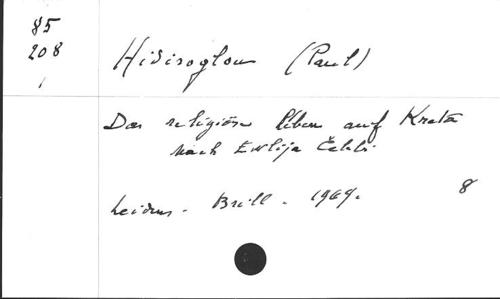 85
208
1
Hidiroglou (Paul)
Das religiöse leben auf Kreta
nach Ewlija Čelebi.
Leiden. Brill. 1969.
8